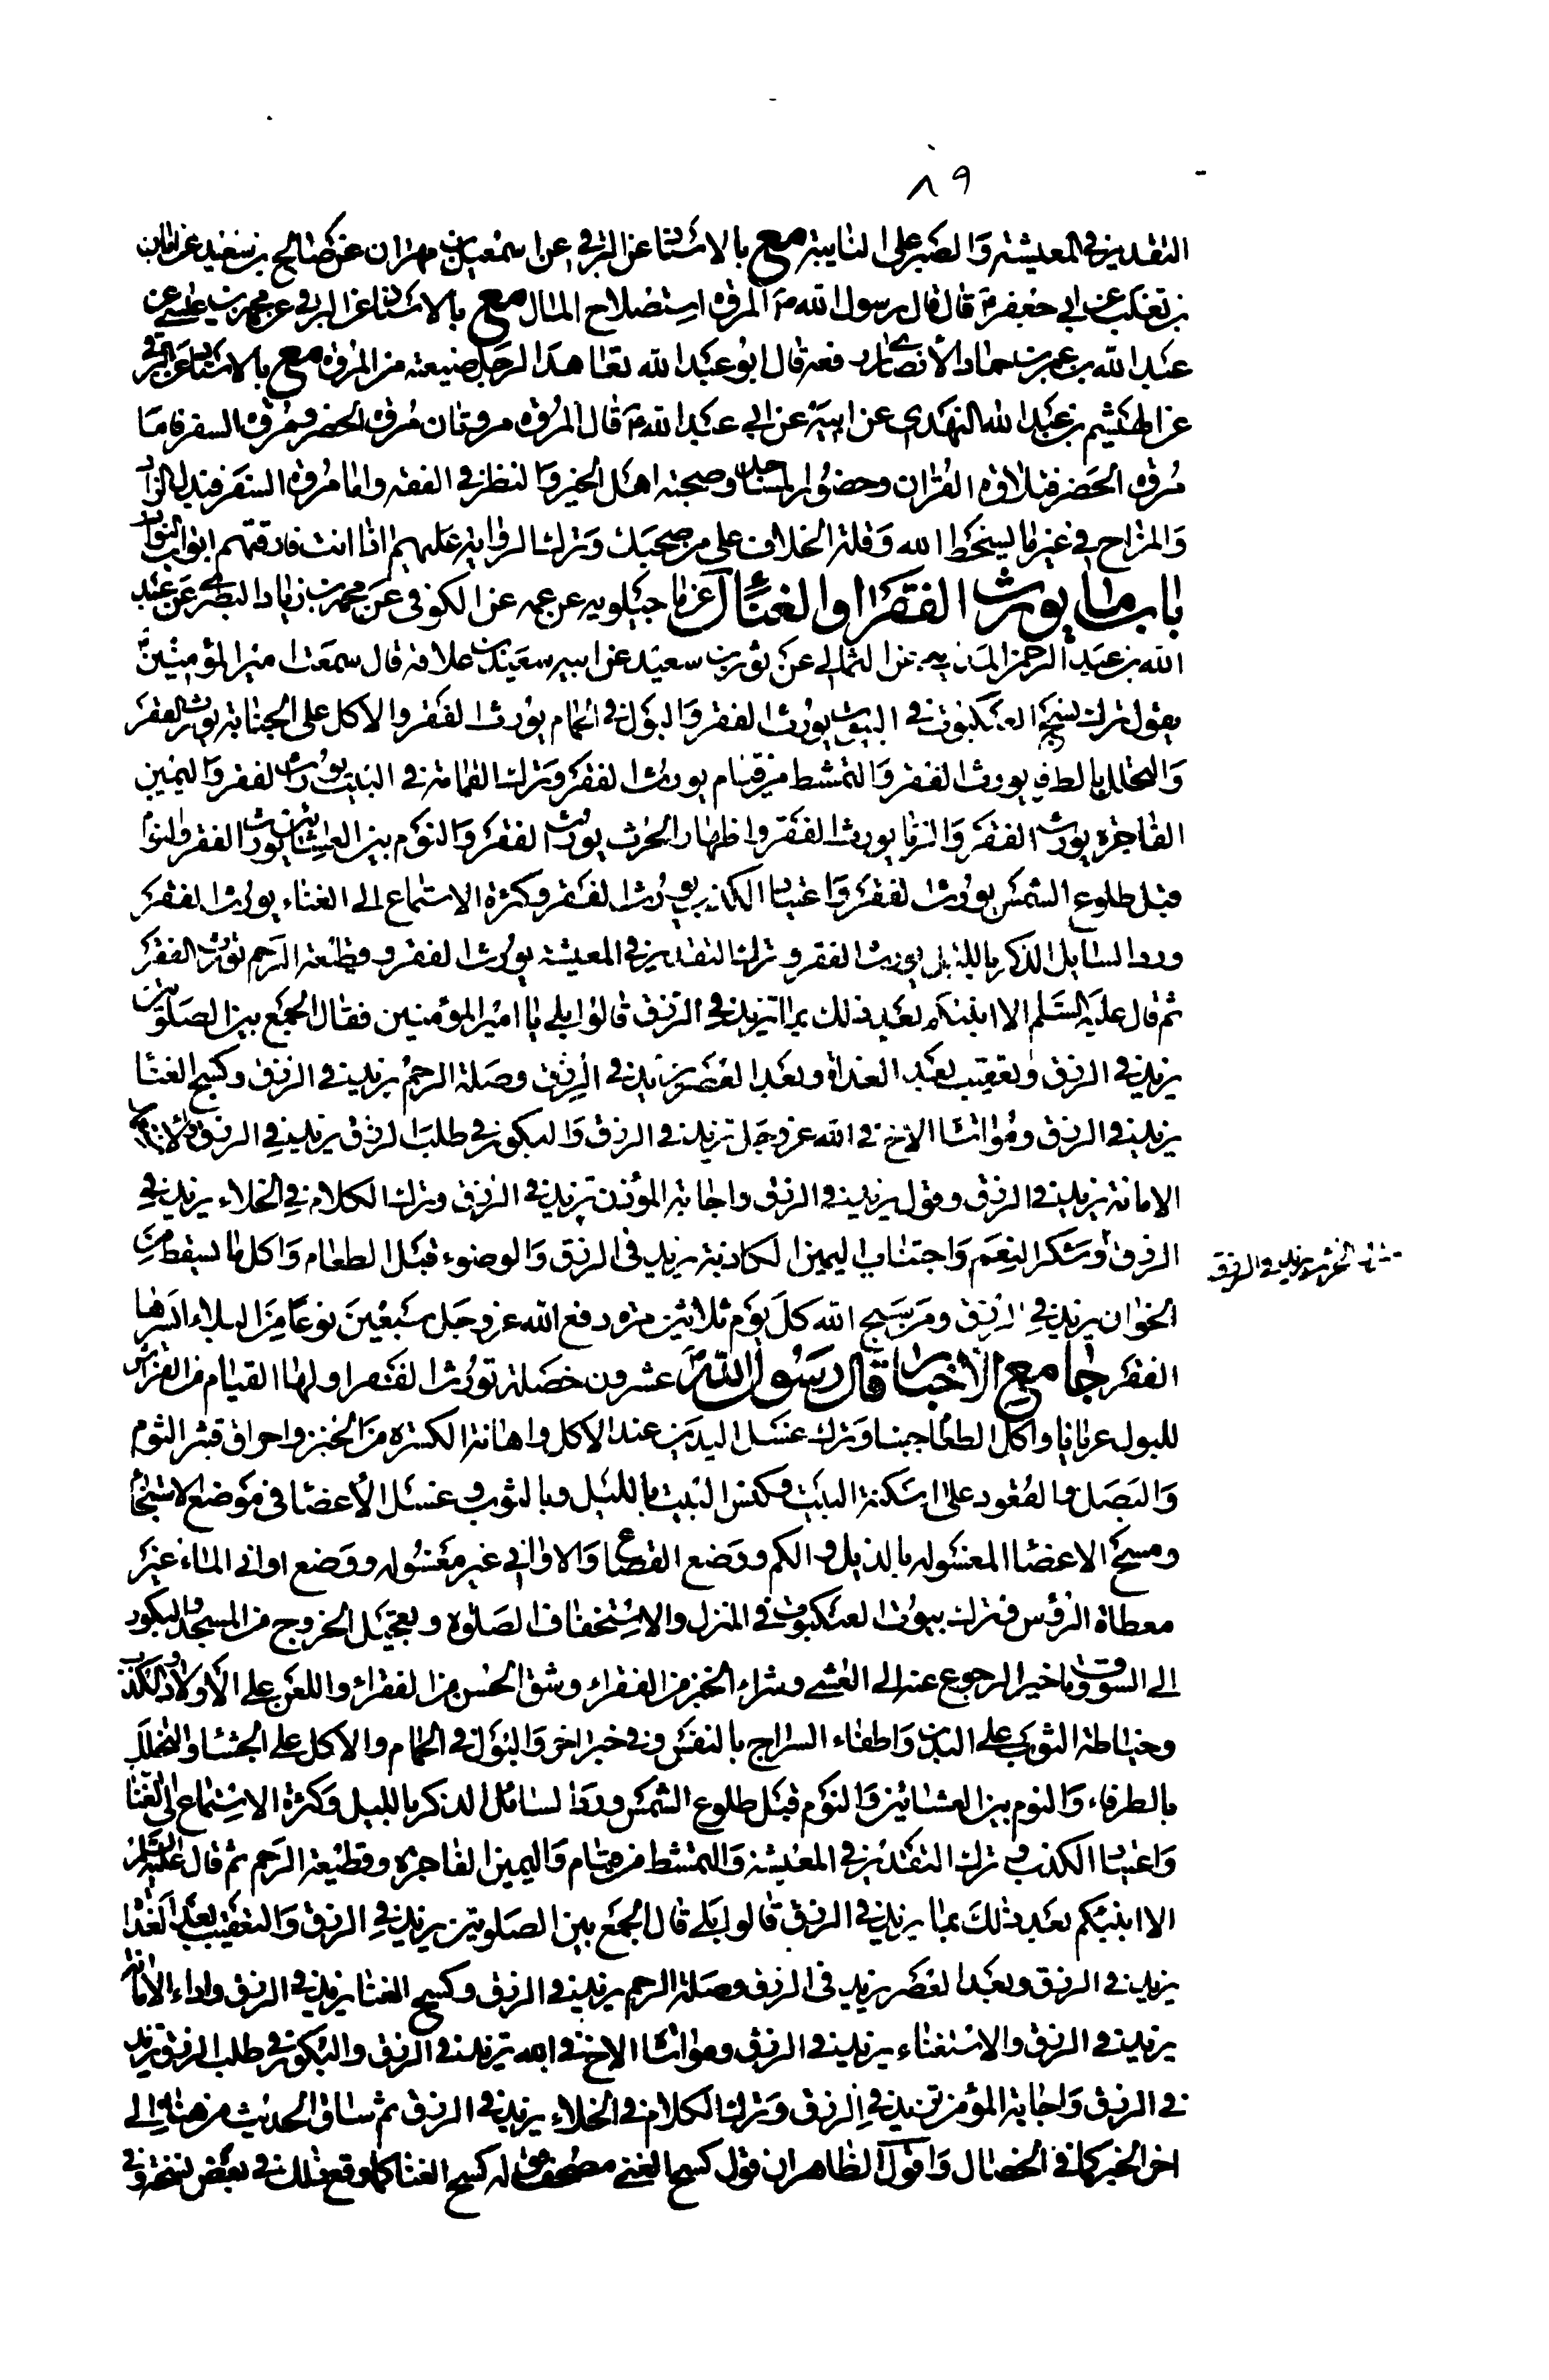 ٨٩
التقدير في المعيشة والصبر على النايبة مع بالاسناد عن البرقي عن اسمعيل بن مهران عن صالح بن سعيد عن ابان
بن تغلب عن ابي جعفر ع قال قال رسول الله ص المروة استصلاح المال مع بالاسناد عن البرقي عن محمد بن علي عن
عبد الله بن عمر بن حماد الأنصاري رفعه قال قال ابو عبد الله تعاهد الرجل ضيعته من المروة مع بالاسناد عن البرقي
عن الهيثم بن عبد الله النهدي عن ابيه عن ابي عبد الله ع قال المروة مروتان مروة الحضر ومروة السفر فاما
مروة الحضر فتلاوة القران وحضور المساجد وصحبة اهل الخير والنظر في الفقه واما مروة السفر فبذل الزاد
والمزاح في غير ما يسخط الله وقلة الخلاف على من صحبك وترك الرواية عليهم اذا انت فارقتهم ابواب النوادر
باب ما يورث الفقر او الغناء ل عن ماجيلويه عن عمه عن الكوفي عن محمد بن زياد البصري عن عبد
الله بن عبد الرحمن المدني عن الثمالي عن ثور بن سعيد عن ابيه سعيد بن علاقة قال سمعت امير المؤمنين ع
يقول ترك نسج العنكبوت في البيوت يورث الفقر والبول في الحمام يورث الفقر والاكل على الجنابة يورث الفقر
والتخلل بالطرفاء يورث الفقر والتمشط من قيام يورث الفقر وترك القمامة في البيت يورث الفقر واليمين
الفاجرة يورث الفقر والزنا يورث الفقر واظهار الحرث يورث الفقر والنوم بين العشائين يورث الفقر والنوم
قبل طلوع الشمس يورث الفقر واعتياد الكذب يورث الفقر وكثرة الاستماع الى الغناء يورث الفقر
ورد السايل الذكر بالليل يورث الفقر وترك التقدير في المعيشة يورث الفقر وقطيعة الرحم تورث الفقر
ثم قال عليه السلم الا انبئكم بعد ذلك بما تزيد في الرزق قالوا بلى يا امير المؤمنين فقال الجمع بين الصلوتين
يزيد في الرزق وتعقيب بعد الغداة وبعد العصر يزيد في الرزق وصلة الرحم يزيد في الرزق وكسح الغناء
يزيد في الرزق ومواساة الاخ في الله عز وجل تزيد في الرزق والبكور في طلب الرزق يزيد في الرزق
الامانة يزيد في الرزق وقول يزيد في الرزق واجابة المؤذن تزيد في الرزق وترك الكلام في الخلاء يزيد في
الرزق وشكر النعم واجتناب اليمين الكاذبة يزيد في الرزق والوضوء قبل الطعام واكل ما يسقط من
الخوان يزيد في الرزق ومن سبح الله كل يوم ثلاثين مرة دفع الله عز وجل سبعين نوعا من البلاء ايسرها
الفقر جامع الأخبار قال رسول الله ص عشرون خصلة تورث الفقر اولها القيام من الفراش
للبول عريانا واكل الطعام جنبا وترك غسل اليدين عند الاكل واهانة الكسرة من الخبز واحراق قشر الثوم
والبصل والقعود على اسكفة البيت وكنس البيت بالليل وبالثوب وغسل الأعضا في موضع الاستنجا
ومسح الاعضا المغسوله بالذيل والكم ووضع القصاع والاواني غير مغسوله ووضع اواني الماء غير
مغطاة الرؤس وترك بيوت العنكبوت في المنزل والاستخفاف الصلوة وتعجيل الخروج من المسجد والبكور
الى السوق وتاخير الرجوع عنه الى العشي وشراء الخبز من الفقراء وشق الحسن من الفقراء واللعن على الأولاد والكذب
وخياطة الثوب على البدن واطفاء السراج بالنفس وفي خبر اخر والبول في الحمام والاكل على الجشا والتخلل
بالطرفاء والنوم بين العشائين والنوم قبل طلوع الشمس ورد السائل الذكر بالليل وكثرة الاستماع الى الغناء
واعتياد الكذب وترك التقدير في المعيشة والتمشط من قيام واليمين الفاجرة وقطيعة الرحم ثم قال عليه السلم
الا انبئكم بعد ذلك بما يزيد في الرزق قالوا بلى قال الجمع بين الصلوتين يزيد في الرزق والتعقيب بعد الغداة
يزيد في الرزق وبعد العصر يزيد في الرزق وصلة الرحم يزيد في الرزق وكسح الغنا يزيد في الرزق واداء الأمانة
يزيد في الرزق والاستغناء يزيد في الرزق ومواساة الاخ في الله تزيد في الرزق والبكور في طلب الرزق يزيد
في الرزق واجابة المؤذن تزيد في الرزق وترك الكلام في الخلاء يزيد في الرزق ثم ساق الحديث من هناه الى
اخر الخبر كما في الخصال واقول الظاهر ان قول كسح الغنى مصحف له كسح الغنا كما وقع ذلك في بعض نسخه و في